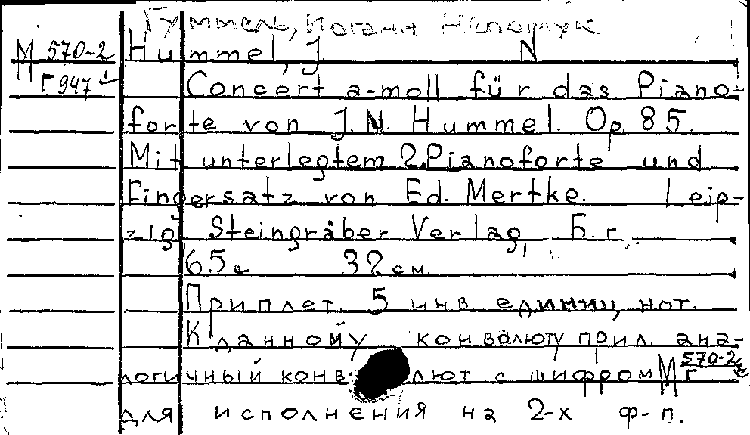 Гуммель, Иоганн Непомук
М 570-2 Hummel, J N
Г 947
Concert a-moll für das Piano-
forte von J. N. Hummel. Op. 85.
Mit unterlegtem 2. Pianoforte und
Fingersatz von Ed. Mertke. Leip-
zig, Steingräber Verlag, Б. г.
65 с 32 см
Приплет. 5 инв. единиц нот.
К данному конвалюту прил. ана-
логичный конв лют с шифром М 570-2
Г
для исполнения на 2-х ф-п.